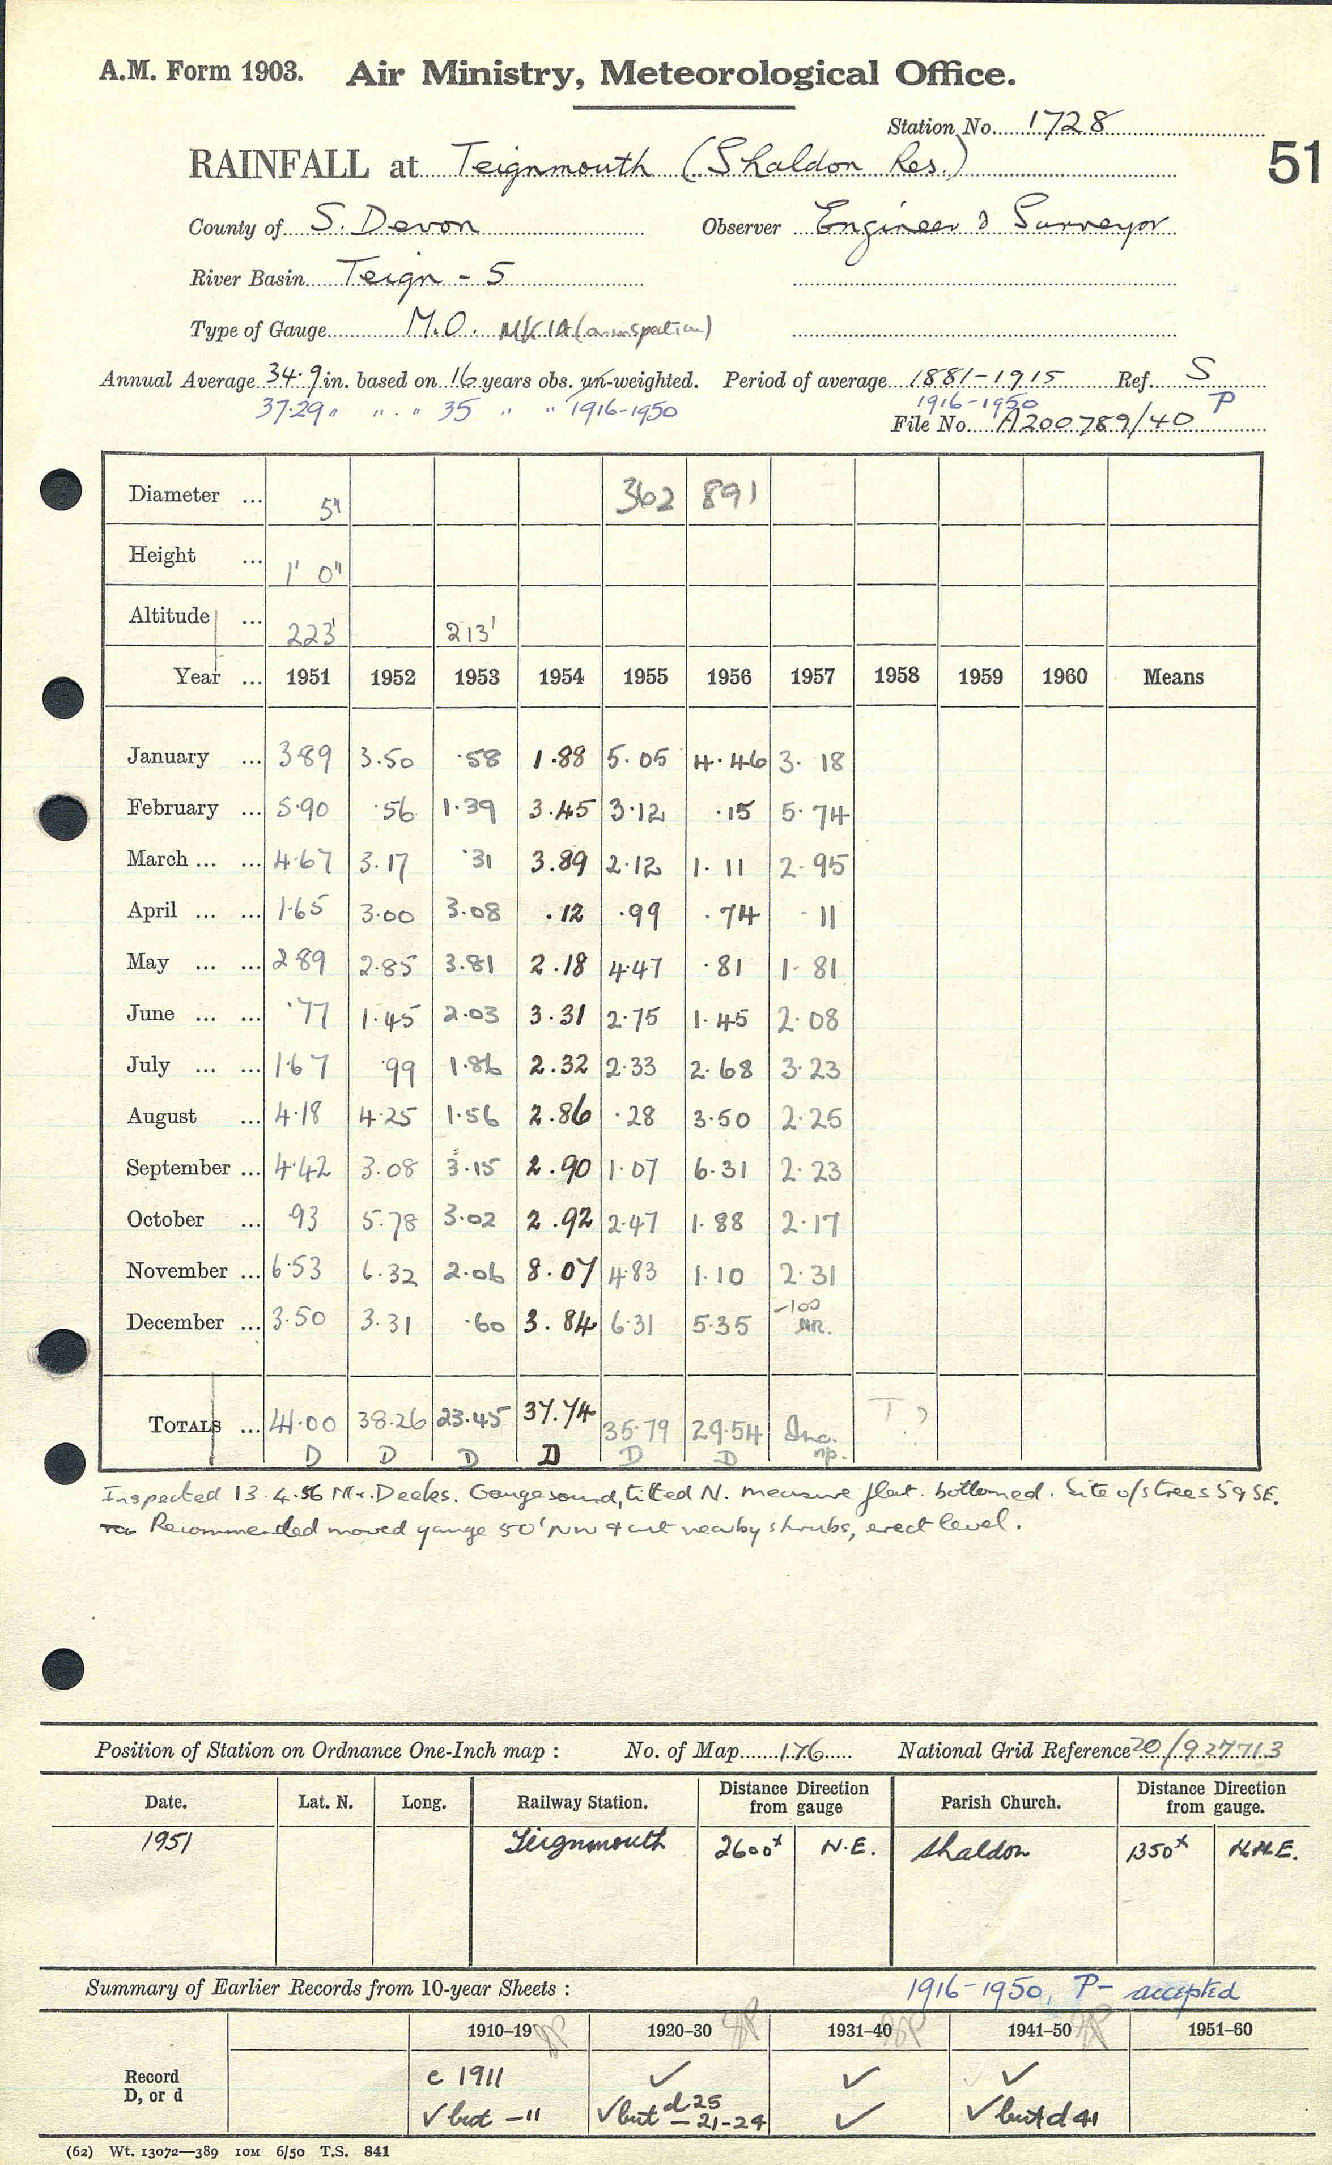 A.M. Form 1903. Air Ministry, Meteorological Office.
Station No. 1728
RAINFALL at Teignmouth (Shaldon Res.)
51
County of S. Devon Observer Engineer & Surveyor
River Basin Teign - 5
Type of Gauge M.O. MK IA (on inspection)
Annual Average 34.9 in. based on 16 years obs. un-weighted. Period of average 1881-1915 Ref. S
37.29 " " . " 35 " " 1916-1950 1916-1950 P
File No. A200789/40
Diameter ... 5" 362 891
Height ... 1' 0"
Altitude ... 223' 213'
Year ... 1951 1952 1953 1954 1955 1956 1957 1958 1959 1960 Means
January ... 3.89 3.50 .58 1.88 5.05 4.46 3.18
February ... 5.90 .56 1.39 3.45 3.12 .15 5.74
March ... ... 4.67 3.17 .31 3.89 2.12 1.11 2.95
April ... ... 1.65 3.00 3.08 .12 .99 .74 .11
May ... ... 2.89 2.85 3.81 2.18 4.47 .81 1.81
June ... ... .77 1.45 2.03 3.31 2.75 1.45 2.08
July ... ... 1.67 .99 1.86 2.32 2.33 2.68 3.23
August ... 4.18 4.25 1.56 2.86 .28 3.50 2.25
September ... 4.42 3.08 3.15 2.90 1.07 6.31 2.23
October ... .93 5.78 3.02 2.92 2.47 1.88 2.17
November ... 6.53 6.32 2.06 8.07 4.83 1.10 2.31
December ... 3.50 3.31 .60 3.84 6.31 5.35 -100 NR.
TOTALS ... 41.00 38.26 23.45 37.74 35.79 29.54 Inc. T ?
D D D D D D np.
Inspected 13.4.56 Mr. Deeks. Gauge sound, tilted N. measure flat bottomed. Site o/s trees S & SE.
Recommended moved gauge 50' NW & cut nearby shrubs, erect level.
Position of Station on Ordnance One-Inch map : No. of Map 176 National Grid Reference 20/927713
Date. Lat. N. Long. Railway Station. Distance Direction from gauge Parish Church. Distance Direction from gauge.
1951 Teignmouth 2600x N.E. Shaldon 1350x N.N.E.
Summary of Earlier Records from 10-year Sheets : 1916-1950, P- accepted
1910-19 1920-30 1931-40 1941-50 1951-60
Record c 1911 ✓ ✓ ✓
D, or d ✓ but -11 ✓ but d 25 - 21-24 ✓ ✓ but d 41
(62) Wt. 13072—389 10M 6/50 T.S. 841